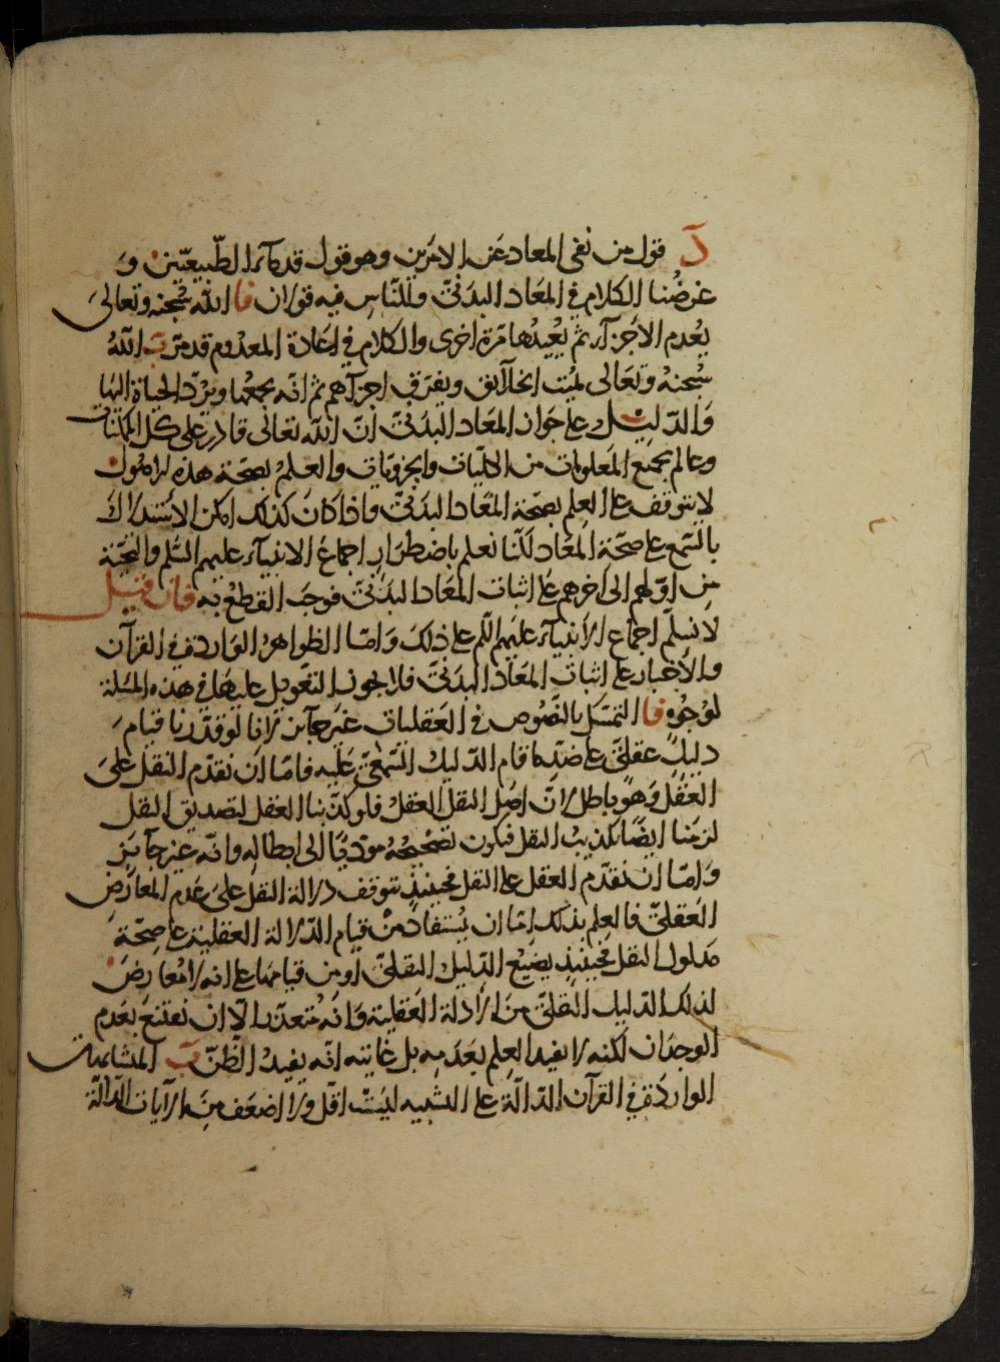 د قول من نفى المعاد عن الامرين وهو قول قدمآء الطّبيعيّين وَ
غرضُنا الكلام في المعَاد البدَنىّ وللنّاسِ فيه قولان ا الله سُبحنه وتعالىَ
يُعدم الاجزآء ثم يُعيْدُها مرّة اخرى والكلام في اعَادة المعدُوم قد مرّ بَ اللهُ
سُبحنهُ وتعَالى يُميْت الخلآئق ويفرّق اجزآهم ثم انّه يجمعُها ويرُدّ الحياة اليْها
وَالدّليْل على جَواز المعَاد البدَنىّ انّ الله تعَالى قادر على كل الممكنات
وعالم بجميع المَعلومات من الكليّات والجزويّات والعلمُ بصحّة هذه الاصُول
لا يتوقف على العِلم بصحّة المعَاد البدَنىّ واذا كانَ كذلك امكن الاستدلال
بالسّمع على صحّة المعَاد لكنا نعلم باضطرارٍ اجماعَ الانبيآء عليهم السّلم والتحيّة
مِن اوّلهم الى آخرهم علَى اثبات المعَاد البدَنىّ فوجَب القطعُ به فان قيل
لا نسلّم اجماع الانبيآء علَيهم السّلم على ذلكَ وَامّا الظواهرُ الوَاردة فى القرآن
والاخبار على اثباتِ المعَاد البدَنىّ فلا يجوز التعوِيل عليهَا فى هذه المسئلة
لوُجُوهٍ ا التمسّك بالنّصُوص فى العَقليات غيرَ جآئز لانا لو قدّرنا قيامَ
دليلٍ عقليّ على ضدّ ما قام الدّليلُ السّمعىّ عَليه فامّا ان نقدّم النقل علىَ
العقل وَهُو باطل لانّ اصْل النقل العَقلُ فلو كذّبنا العقل لتصديق النقل
لزمَنا ايضًا تكذيبُ النقل فيكون تصْحِيحُهُ مؤدّيًا الى ابطاله وانّه غير جآئزٍ
وَامّا ان نقدّم العقل على النقل فحينئذٍ تتوقف دلالة النقل علىَ عَدم المعَارض
العَقلىّ فالعِلم بذلك امّا ان يُستفاد منْ قيام الدّلالة العقليّة على صِحّةِ
مَدلول النقل فحِينئذٍ يضيْع الدّليل النقلىّ اومن قيامهَا على انه لا مُعارِضَ
لذلك الدّليل النقلىّ من الادلة العَقلية وَانّه مُتعذّر الّا ان نقتنعَ بعَدم
الوجدَان لكنّه لا يفيد العِلم بعَدمِه بل غايته انّه يفيدُ الظّنّ بَ المتشابهات
الواردَة في القرآن الدّالّة على التشبيه ليْسَت اقلّ ولا اضعَف مِنَ الآيات الدّالّة